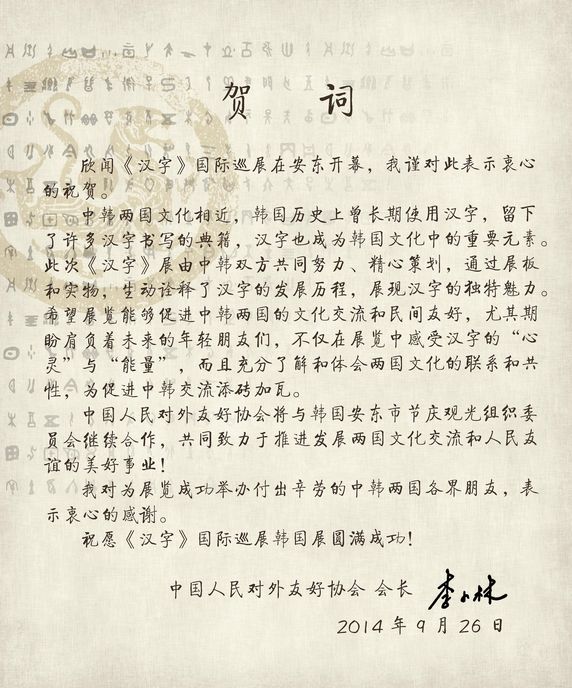 贺 词
欣闻《汉字》国际巡展在安东开幕，我谨对此表示衷心
的祝贺。
中韩两国文化相近，韩国历史上曾长期使用汉字，留下
了许多汉字书写的典籍，汉字也成为韩国文化中的重要元素。
此次《汉字》展由中韩双方共同努力、精心策划，通过展板
和实物，生动诠释了汉字的发展历程，展现汉字的独特魅力。
希望展览能够促进中韩两国的文化交流和民间友好，尤其期
盼肩负着未来的年轻朋友们，不仅在展览中感受汉字的“心
灵”与“能量”，而且充分了解和体会两国文化的联系和共
性，为促进中韩交流添砖加瓦。
中国人民对外友好协会将与韩国安东市节庆观光组织委
员会继续合作，共同致力于推进发展两国文化交流和人民友
谊的美好事业！
我对为展览成功举办付出辛劳的中韩两国各界朋友，表
示衷心的感谢。
祝愿《汉字》国际巡展韩国展圆满成功！
中国人民对外友好协会 会长 李小林
2014年9月26日